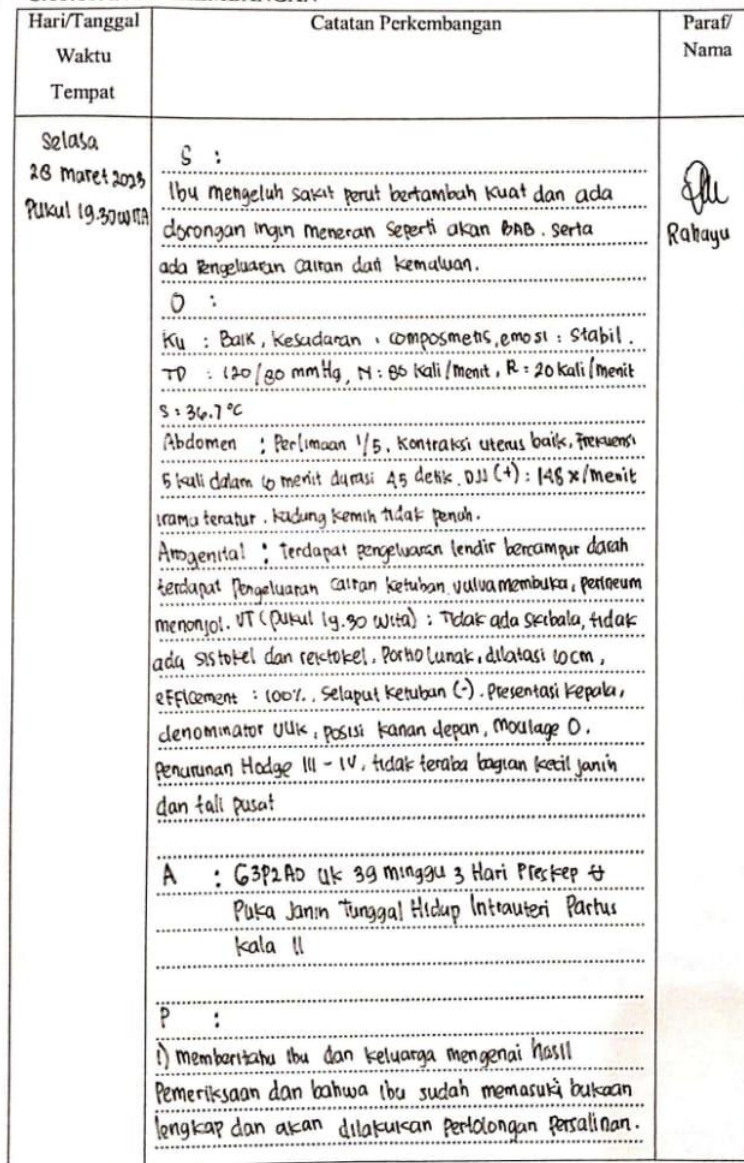 Hari/Tanggal
Waktu
Tempat
Catatan Perkembangan
Paraf/
Nama
Selasa
28 Maret 2023
Pukul 19.30 WITA
S :
Ibu mengeluh sakit perut bertambah kuat dan ada
dorongan ingin meneran seperti akan BAB. Serta
ada pengeluaran cairan dari kemaluan.
O :
Ku : Baik, kesadaran : composmetis, emosi : Stabil.
TD : 120/80 mmHg, N : 80 kali/menit, R : 20 kali/menit
S : 36.7 °C
Abdomen : Perlimaan 1/5, kontraksi uterus baik, Frekuensi
5 kali dalam 10 menit durasi 45 detik. DJJ (+) : 148 x/menit
irama teratur. kadung kemih tidak penuh.
Anogenital : Terdapat pengeluaran lendir bercampur darah
terdapat Pengeluaran cairan ketuban. vulva membuka, perineum
menonjol. VT (pukul 19.30 wita) : Tidak ada skibala, tidak
ada sistokel dan rektokel, Portio Lunak, dilatasi 10 cm,
efficement : 100%. Selaput ketuban (-). Presentasi kepala,
denominator UUK, posisi kanan depan, moulage 0.
Penurunan Hodge III - IV, tidak teraba bagian kecil janin
dan tali pusat
A : G3P2A0 UK 39 minggu 3 Hari Preskep
Puka Janin Tunggal Hidup Intrauteri Partus
kala II
P :
1) memberitahu ibu dan keluarga mengenai hasil
Pemeriksaan dan bahwa ibu sudah memasuki bukaan
lengkap dan akan dilakukan pertolongan persalinan.
Rahayu